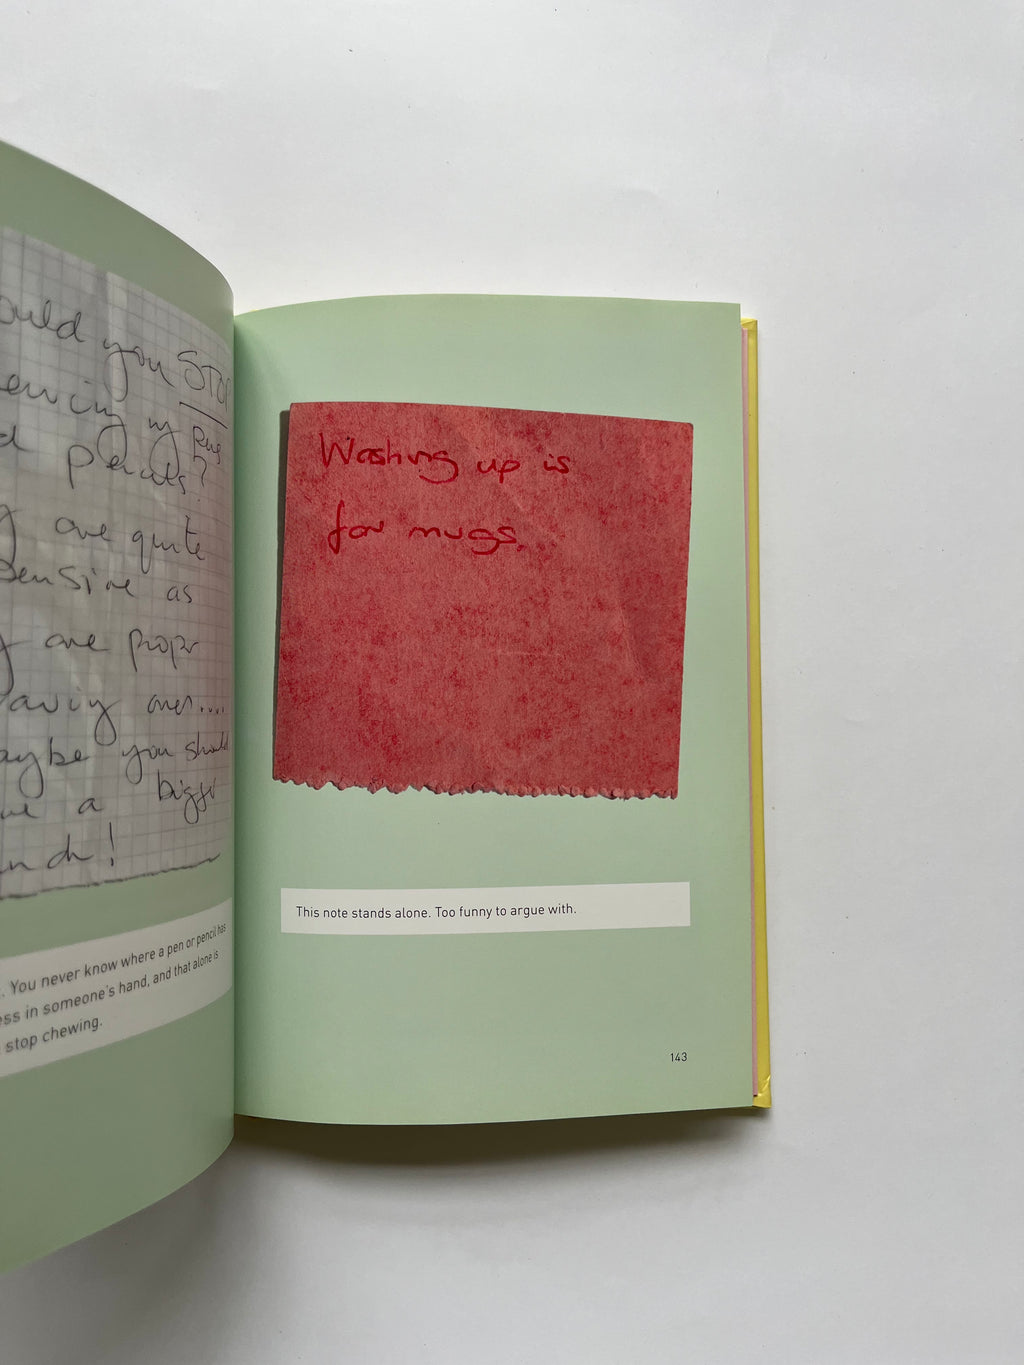 ould you STOP
ewing my pens
d pencils?
y are quite
pensive as
y are propr
awing ones....
aybe you should
ve a bigger
unch!
. You never know where a pen or pencil has
ess in someone's hand, and that alone is
stop chewing.
Washing up is
for mugs.
This note stands alone. Too funny to argue with.
143